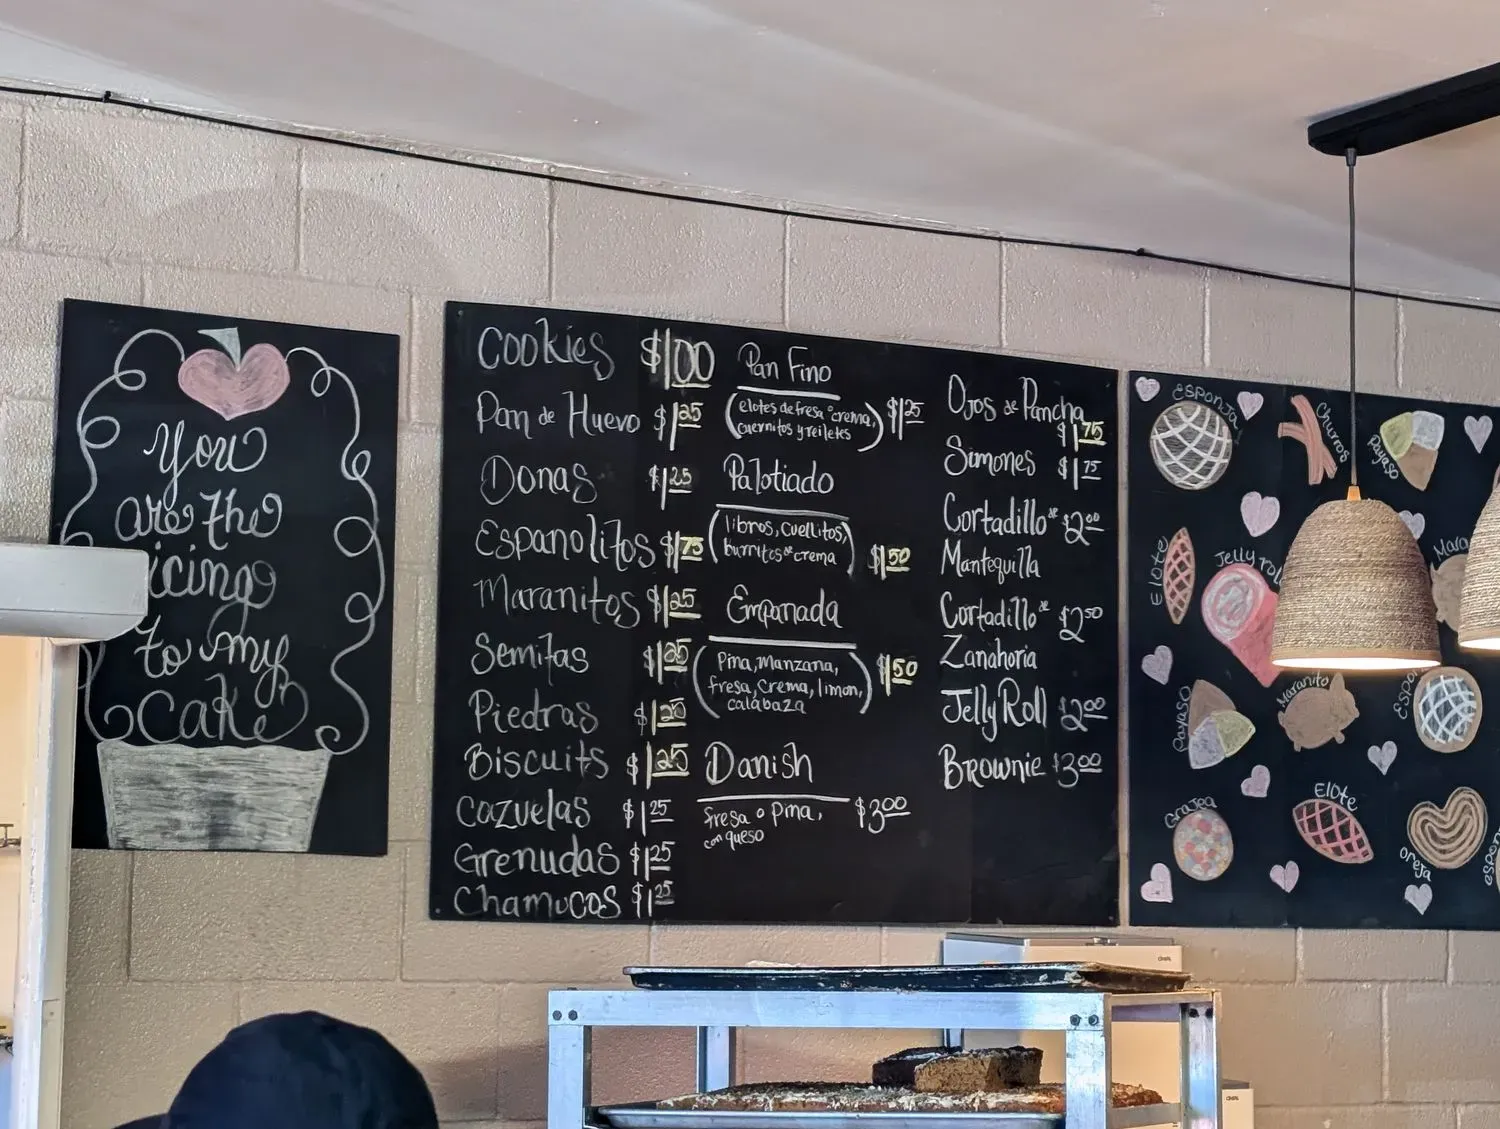 You
are the
icing
to my
cake
Cookies $1.00
Pan de Huevo $1.25
Donas $1.25
Espanolitos $1.75
Maranitos $1.25
Semitas $1.25
Piedras $1.25
Biscuits $1.25
Cazuelas $1.25
Grenudas $1.25
Chamucos $1.25
Pan Fino
(elotes de fresa o crema, $1.25
cuernitos y reiletes)
Palotiado
(libros, cuellitos,
burritos de crema) $1.50
Empanada
(Pina, manzana, $1.50
fresa, crema, limon,
calabaza)
Danish
fresa o pina, $3.00
con queso
Ojos de Pancha
$1.75
Simones $1.75
Cortadillo de $2.00
Mantequilla
Cortadillo de $2.50
Zanahoria
Jelly Roll $2.00
Brownie $3.00
Esponja
Churros
Payaso
Elote
Jelly roll
Mara
Payaso
Maranito
Espo
Grajea
Elote
Oreja
espon